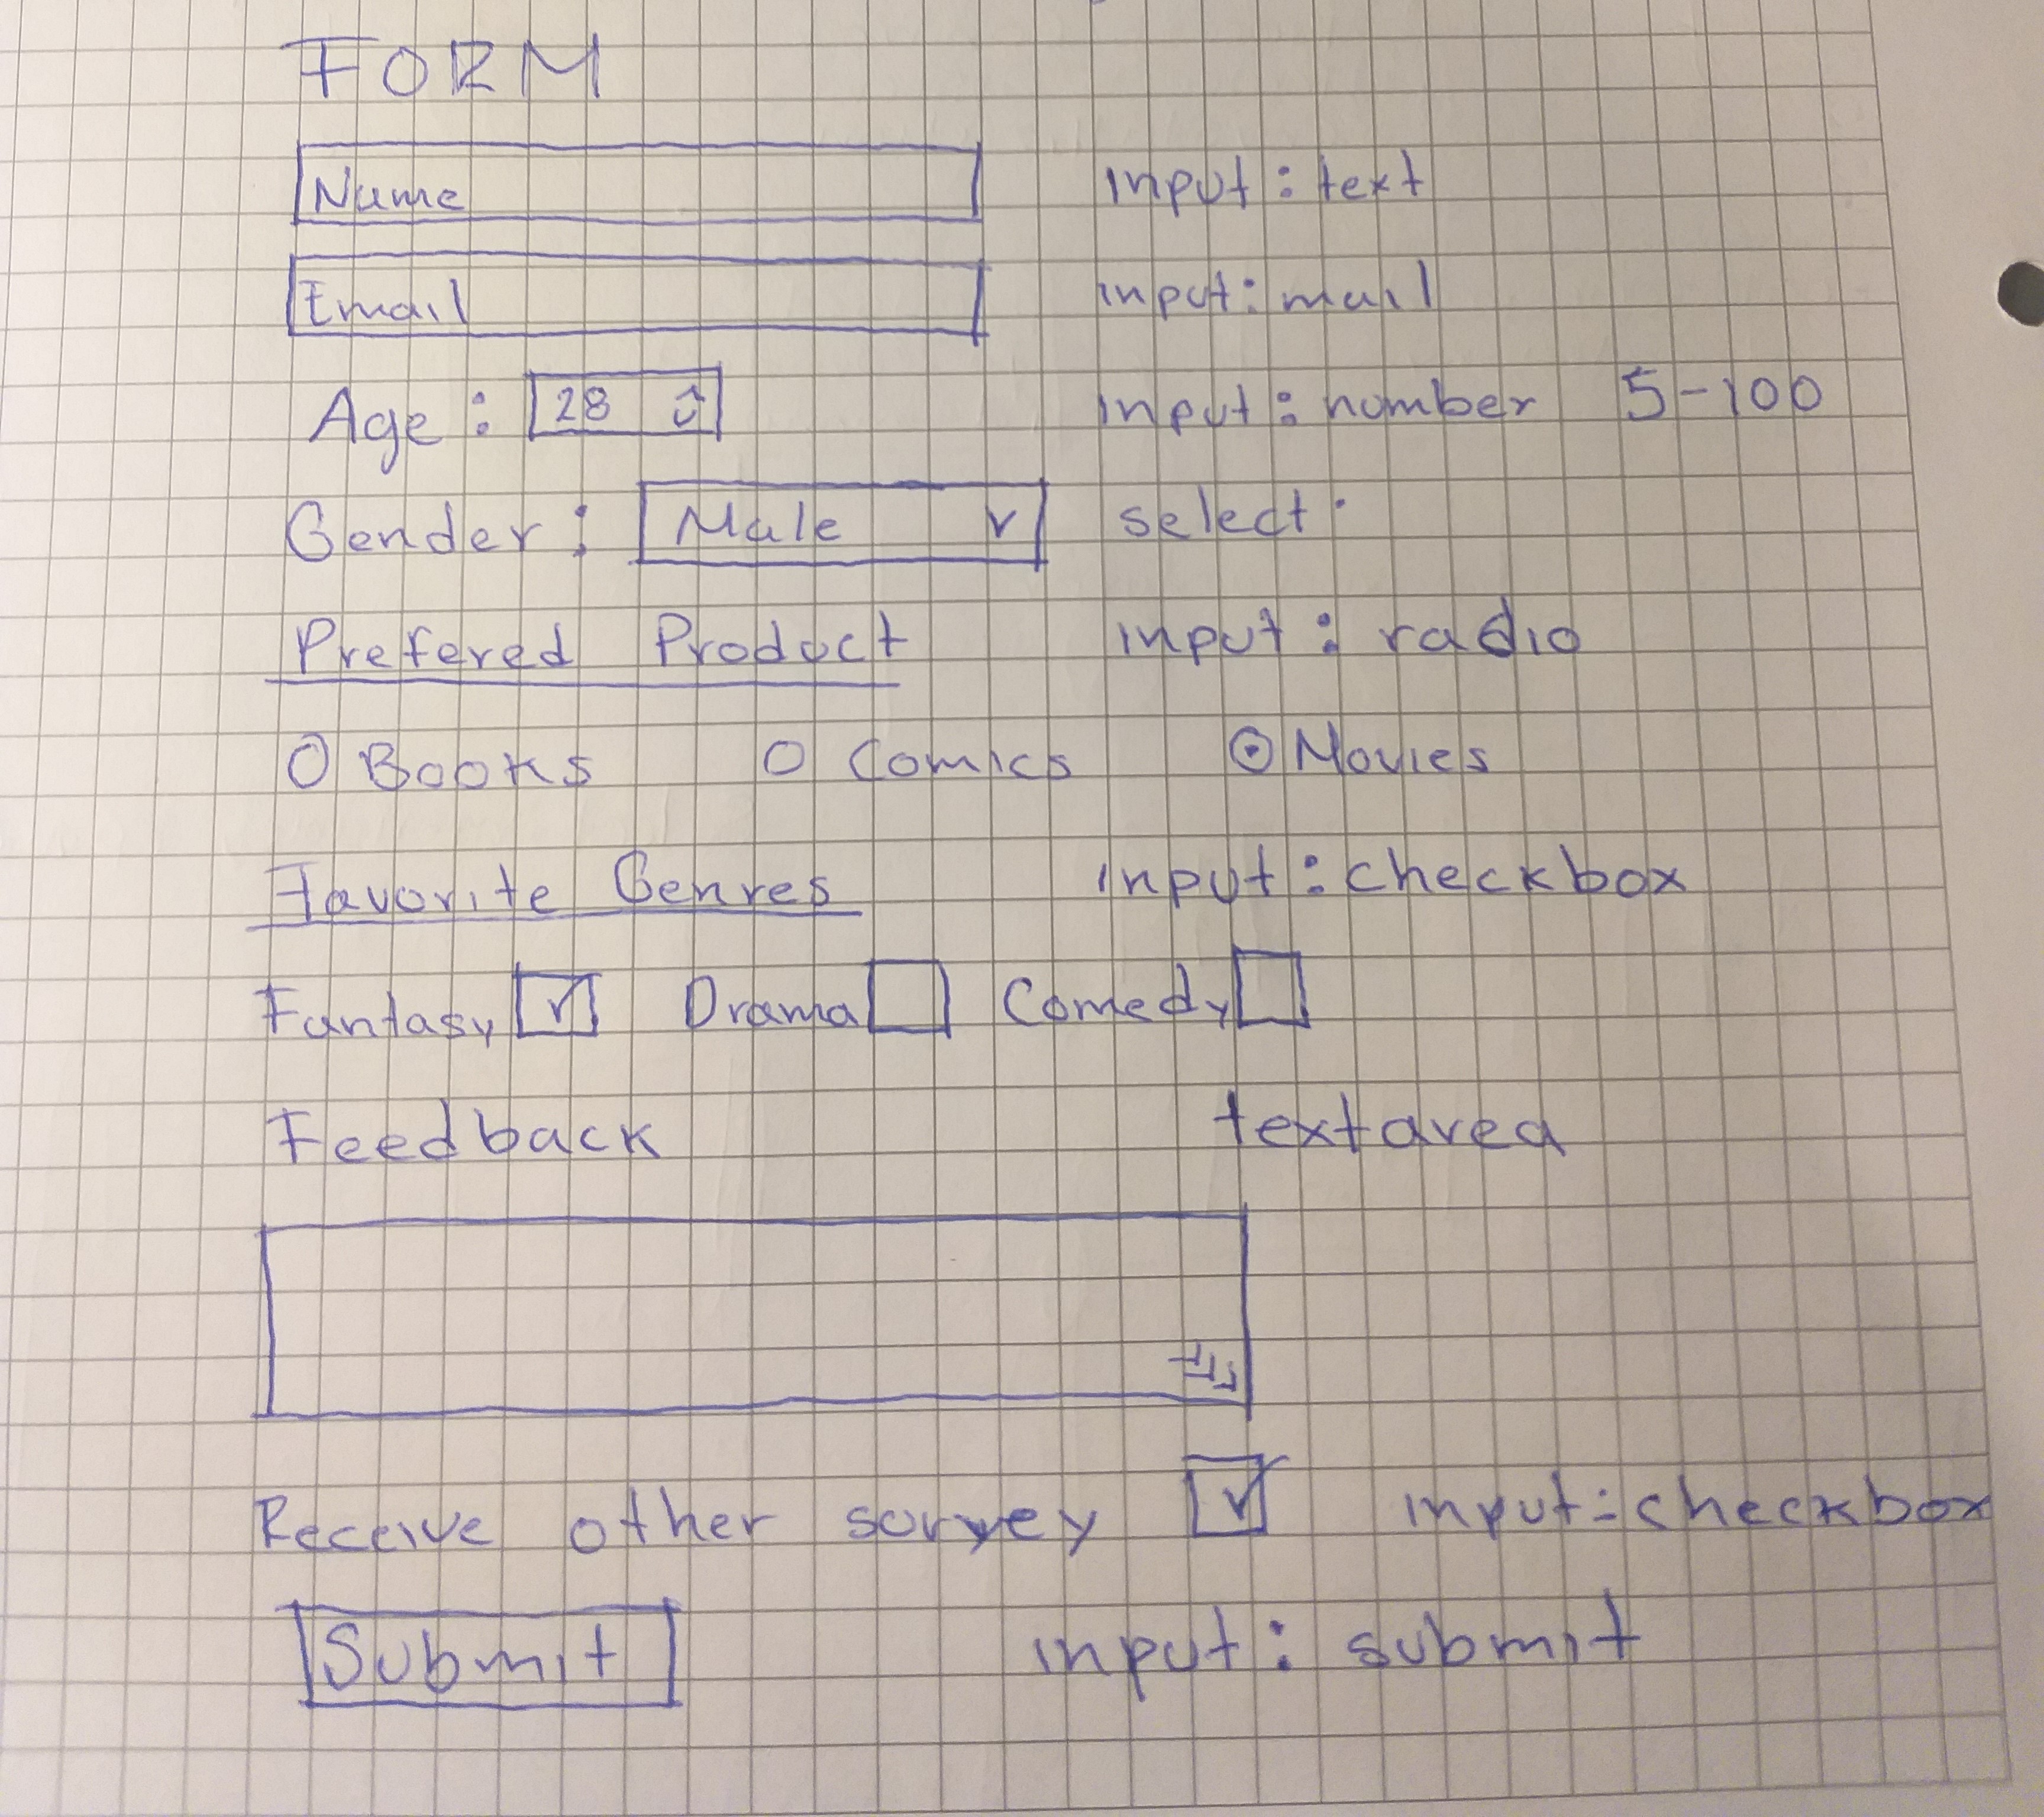 FORM
Name input: text
Email input: mail
Age: 28 input: number 5-100
Gender: Male v select:
Prefered Product input: radio
Books Comics Movies
Favorite Genres input: checkbox
Fantasy Drama Comedy
Feedback textarea
Receive other survey input: checkbox
Submit input: submit